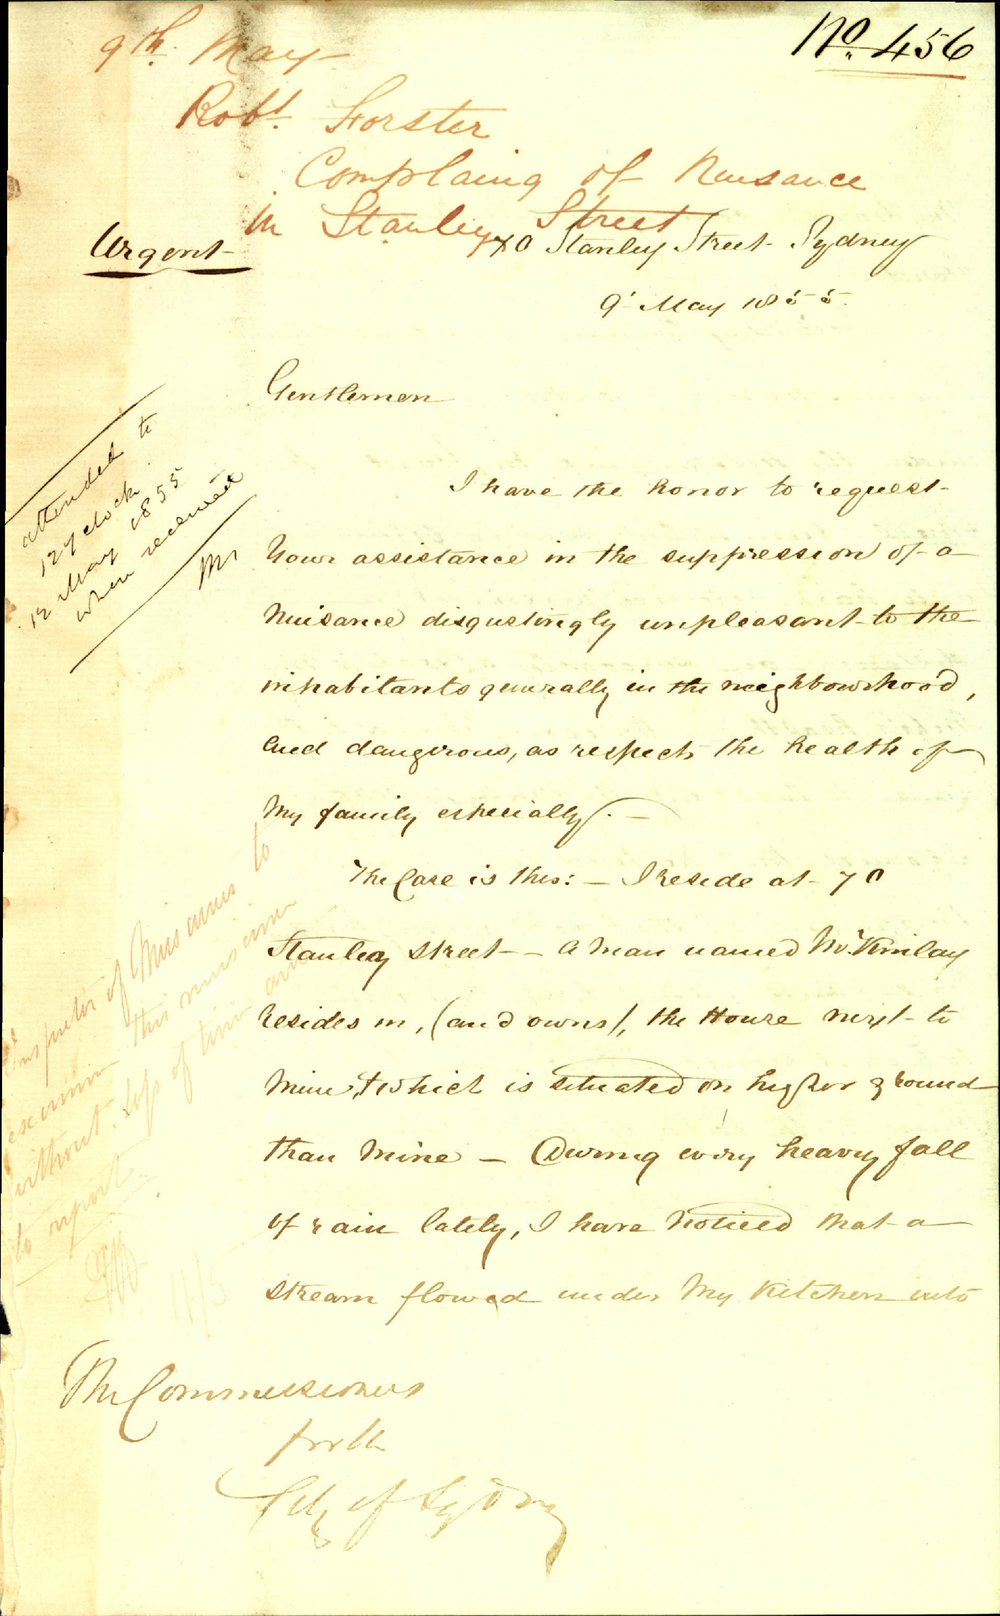 No. 456
9th. May
Robt. Forster
Complaing of Nuisance
in Stanley Street
Urgent
70 Stanley Street Sydney
9 May 1855.
Gentlemen
attended to
12 oclock
12 May 1855
when received
I have the honor to request
Your assistance in the suppression of a
Nuisance disgustingly unpleasant to the
inhabitants generally in the neighbourhood,
And dangerous, as respects the health of
My family especially. —
The Case is this: — I reside at 70
Stanley Street — A Man named McKinlay
resides in, (and owns), the House next to
Mine, & which is situated on higher ground
than Mine — During every heavy fall
of rain lately, I have noticed that a
stream flowed under My Kitchen into
Inspector of Nuisances to
examine this nuisance
without loss of time and
to report
11/5
The Commissioners
for the
City of Sydney